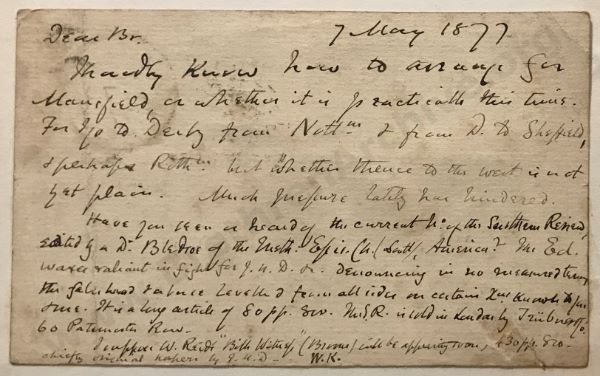 7 May 1877
Dear Br.
I hardly know how to arrange for
Mansfield or whether it is practicable this time.
For I go to Derby from Nottm & from D. to Sheffield,
& perhaps Rothm but whether thence to the west is not
yet plain. Much pressure lately has hindered.
Have you seen or heard of the current No. of the Southern Review,
edited by a Dr Bledsoe of the Meth. Epis. Ch. (South), America? The Ed.
waxes valiant in fight for J.N.D. &c. denouncing in no measured terms
the falsehood & abuse levelled from all sides on certain Xns known to you
& me. It is a long article of 80 pp. 8vo. The S.R. is sold in London by Trübner & Co.
60 Paternoster Row.
I suppose W. Reid's "Bible Witness" (Broom) will be appearing soon, 430 pp. 8vo
chiefly original papers by J.N.D. W.K.